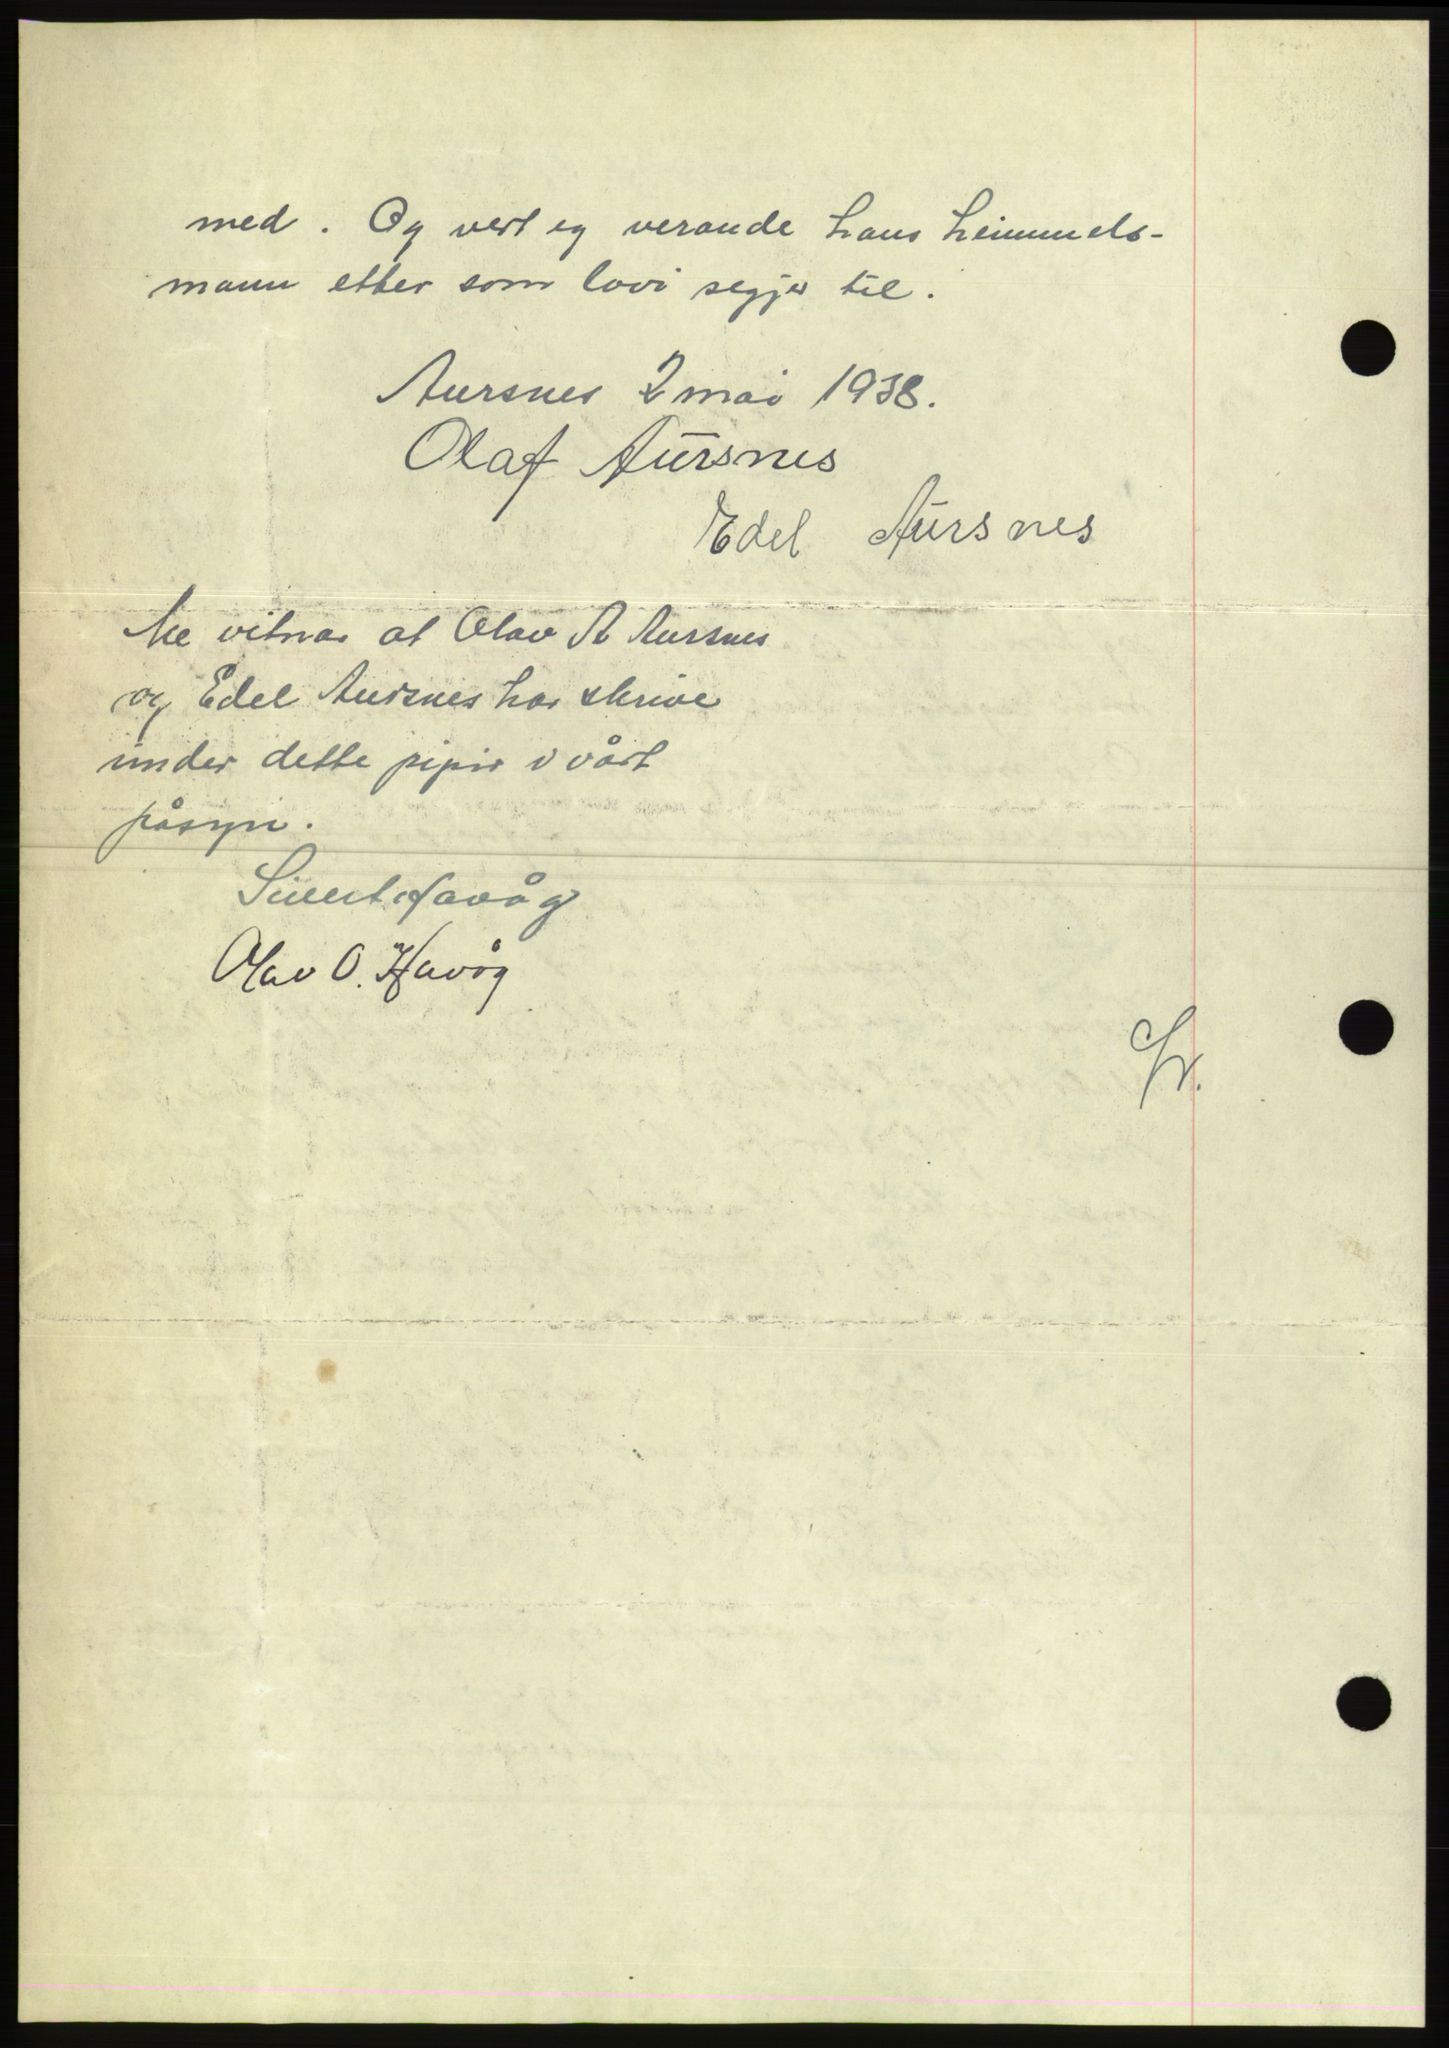 med. Og vert eg verande hans heimmels-
mann etter som lovi segjer til.
Aursnes 2 mai 1938.
Olaf Aursnes
Edel Aursnes
Me vitnar at Olav A Aursnes
og Edel Aursnes har skrive
under dette pipir i vårt
påsyn.
Sivert Havåg
Olav O. Havåg